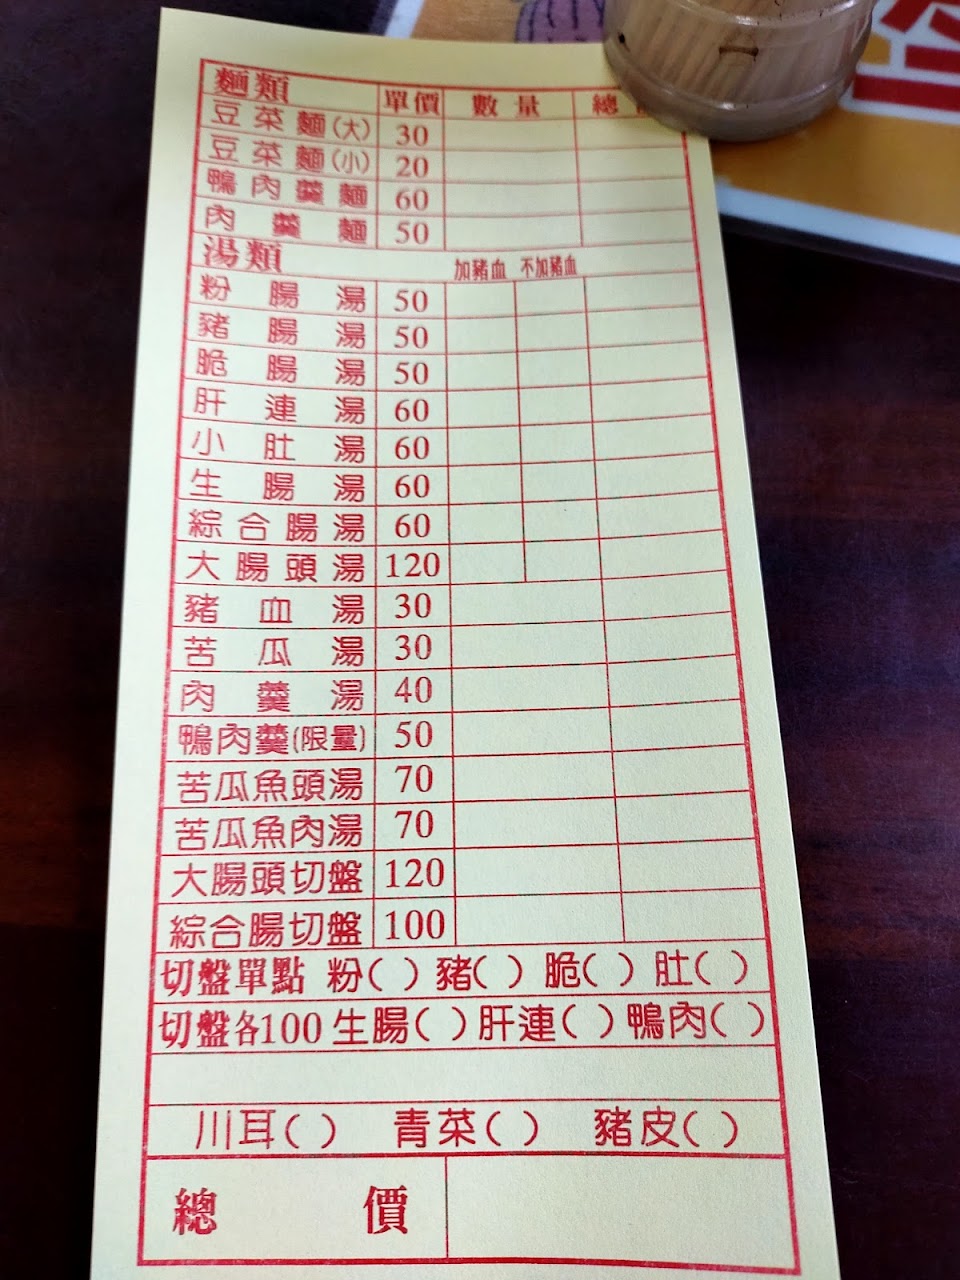 麵類 單價 數量 總
豆菜麵(大) 30
豆菜麵(小) 20
鴨肉羹麵 60
肉羹麵 50
湯類 加豬血 不加豬血
粉腸湯 50
豬腸湯 50
脆腸湯 50
肝連湯 60
小肚湯 60
生腸湯 60
綜合腸湯 60
大腸頭湯 120
豬血湯 30
苦瓜湯 30
肉羹湯 40
鴨肉羹(限量) 50
苦瓜魚頭湯 70
苦瓜魚肉湯 70
大腸頭切盤 120
綜合腸切盤 100
切盤單點 粉( ) 豬( ) 脆( ) 肚( )
切盤各100 生腸( ) 肝連( ) 鴨肉( )
川耳( ) 青菜( ) 豬皮( )
總價